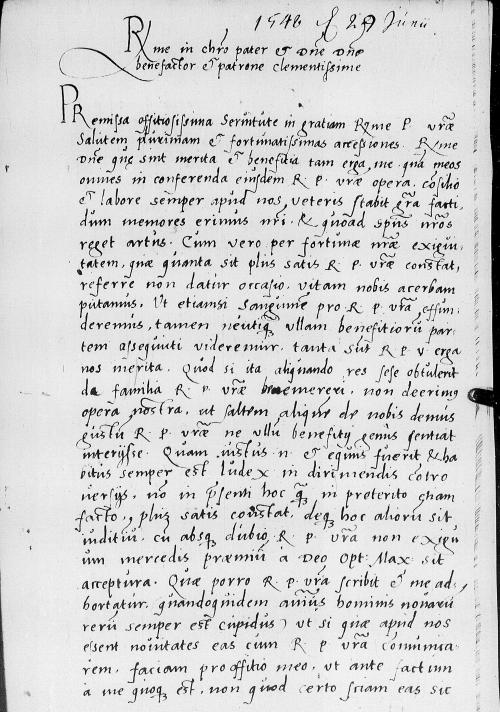 1548 29 Junii
R̃me in chr̃o pater et Dñe Dñe
benefactor et patrone clementissime
PRemissa offitiosissima Seruitute in gratiam R̃me P. vræ
Salutem plurimam et fortunatissimas accessiones. R̃me
Dñe quę sint merita et benefitia tam erga me, quã meos
omnes in conferenda eiusdem R. P. vræ opera, cõsilio
et labore semper apud nos, veteris stabit grã facti,
dum memores erimus nri. & quoad spũs nr̃os
reget artus. Cum vero per fortunæ nr̃æ exigui-
tatem, quæ quanta sit plus satis R. P. vræ constat,
referre non datur occasio, vitam nobis acerbam
putamus. Ut etiamsi Sanguinẽ pro R. P. vr̃a effun-
deremus, tamen neutiq̃ ullam benefitiorũ par-
tem assequuti videremur. tanta sũt R P v erga
nos merita. Quod si ita aliquando res sese obtulerit
de familia R. P. vræ bene mereri, non deerimus
opera nostra, ut saltem aliquẽ de nobis demus
gustũ R. P. vræ ne ullũ benefitij genus sentiat
interijsse. Quam iustus n. et equus fuerit & ha
bitus semper est Iudex in dirimendis cõtro
uersijs, nõ in p̃senti hoc q̃, in preterito etiam
facto, plus satis constat, deq̨ hoc aliorũ sit
iuditiũ, cũ absq̨ dubio R. P. vr̃a non exigu
um mercedis præmiũ à Deo Opt: Max: sit
acceptura. Quæ porro R. P. vr̃a scribit et me ad-
hortatur, quandoquidem animus hominis nouarũ
rerũ semper est cupidus) ut si quæ apud nos
essent nouitates eas cum R P vr̃a comunica-
rem, faciam pro offitio meo, ut ante factum
a me quoq̨ est, non quod certo sciam eas sic